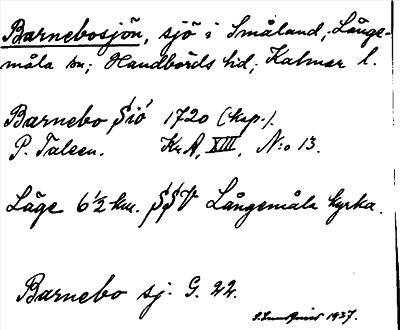 Barnebosjön, sjö i Småland, Långe-
måla sn; Handbörds hd; Kalmar l.
Barnebo Siö 1720 (kop.).
P. Taleen. Kr.A, XIII, N:o 13.
Läge 6½ km. SSV Långemåla kyrka.
Barnebo sj. G. 22.
1937.